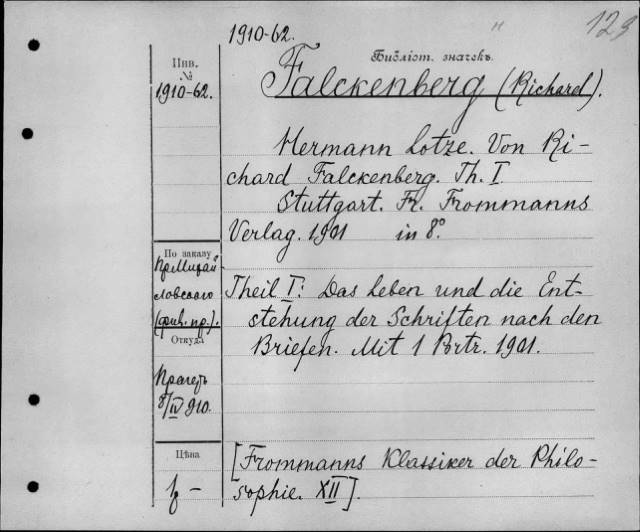 123
1910-62.
Библіот. значекъ.
Инв.
№
1910-62.
Falckenberg (Richard).
Hermann Lotze. Von Ri-
chard Falckenberg. Th. I.
Stuttgart. Fr. Frommanns
Verlag. 1901 in 8º.
По заказу
пр. Мицай-
ловскаго
Откуда
8/IV 910.
Цѣна
Theil I: Das Leben und die Ent-
stehung der Schriften nach den
Briefen. Mit 1 Portr. 1901.
[Frommanns Klassiker der Philo-
sophie. XII].